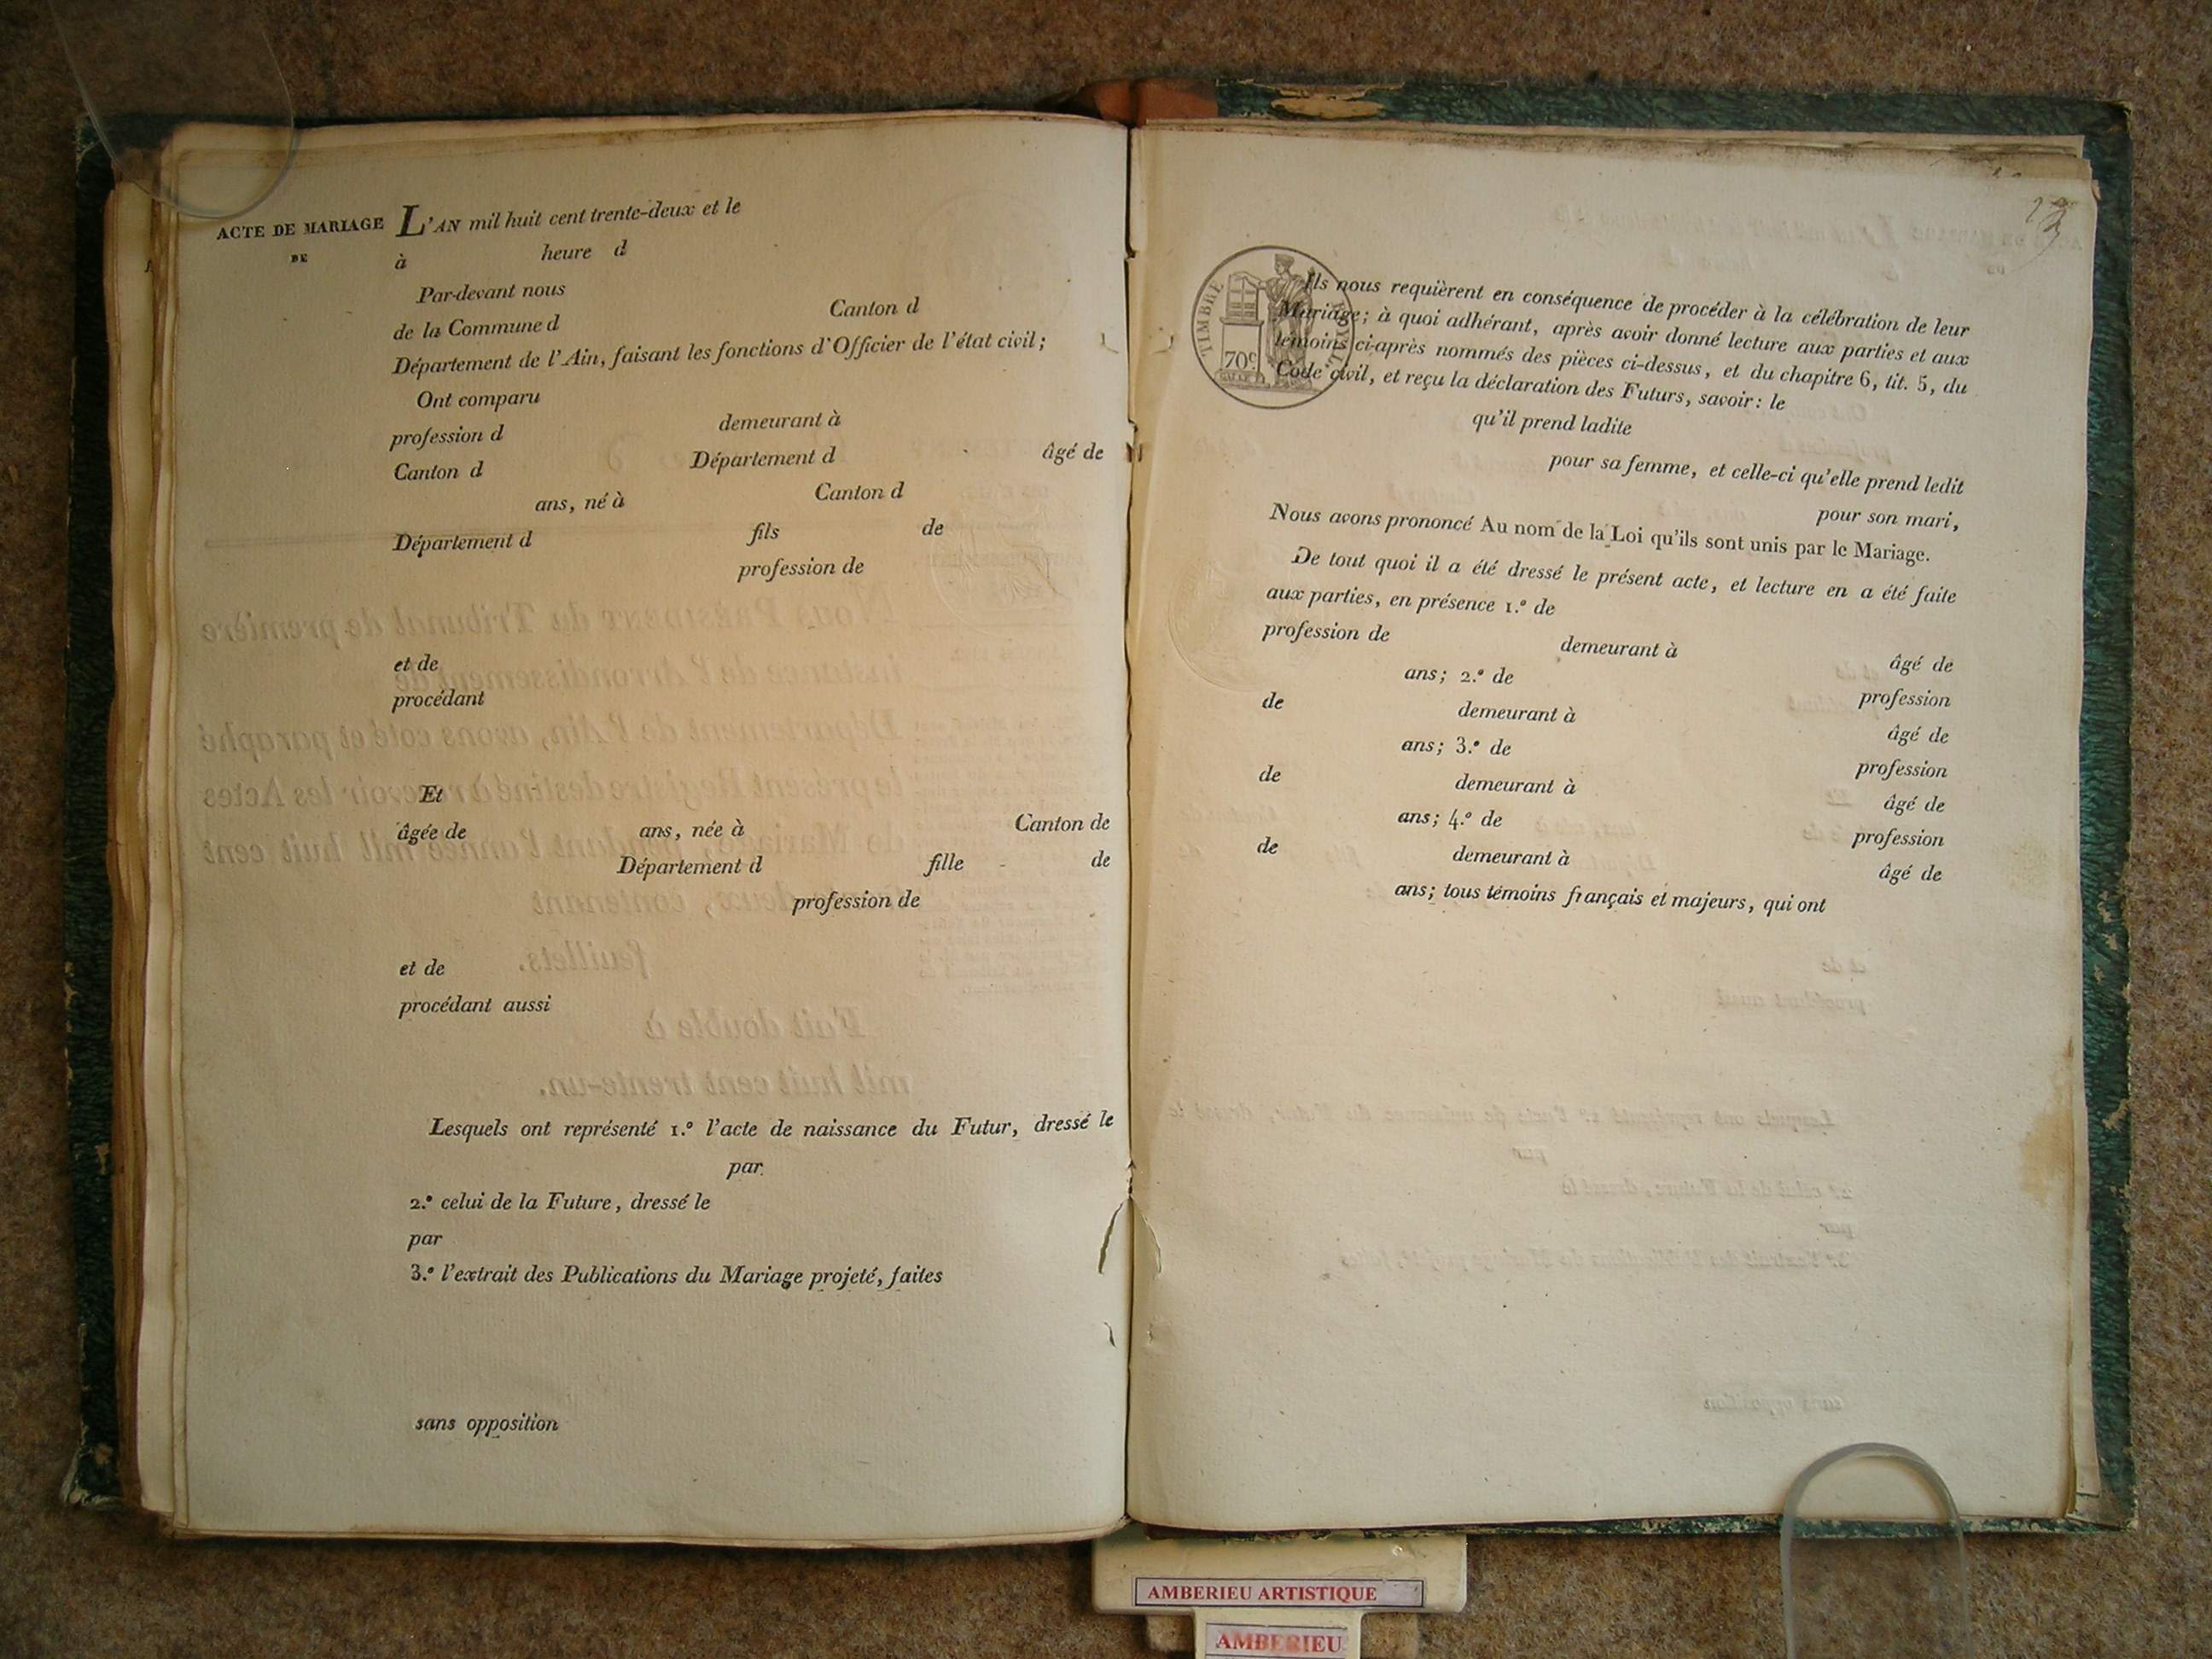 ACTE DE MARIAGE
DE
L'AN mil huit cent trente-deux et le
à heure d
Par-devant nous
de la Commune d Canton d
Département de l'Ain, faisant les fonctions d'Officier de l'état civil;
Ont comparu
profession d demeurant à
Canton d Département d âgé de
ans, né à Canton d
Département d fils de
profession de
et de
procédant
Et
âgée de ans, née à Canton de
Département d fille de
profession de
et de
procédant aussi
Lesquels ont représenté 1.º l'acte de naissance du Futur, dressé le
par
2.º celui de la Future, dressé le
par
3.º l'extrait des Publications du Mariage projeté, faites
sans opposition
TIMBRE ROYAL
70c
Ils nous requièrent en conséquence de procéder à la célébration de leur
Mariage; à quoi adhérant, après avoir donné lecture aux parties et aux
témoins ci-après nommés des pièces ci-dessus, et du chapitre 6, tit. 5, du
Code civil, et reçu la déclaration des Futurs, savoir: le
qu'il prend ladite
pour sa femme, et celle-ci qu'elle prend ledit
pour son mari,
Nous avons prononcé Au nom de la Loi qu'ils sont unis par le Mariage.
De tout quoi il a été dressé le présent acte, et lecture en a été faite
aux parties, en présence 1.º de
profession de demeurant à âgé de
ans; 2.º de profession
de demeurant à âgé de
ans; 3.º de profession
de demeurant à âgé de
ans; 4.º de profession
de demeurant à âgé de
ans; tous témoins français et majeurs, qui ont
AMBERIEU ARTISTIQUE
AMBERIEU